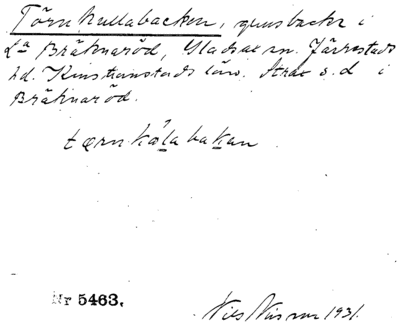 Törnkullabacken, grusbacke i
La Bräknaröd, Gladsax sn. Järrestads
hd. Kristianstads län. Strax s. d i
Bräknaröd.
tærnkolabakan
Nr 5463.
Nils 1931.